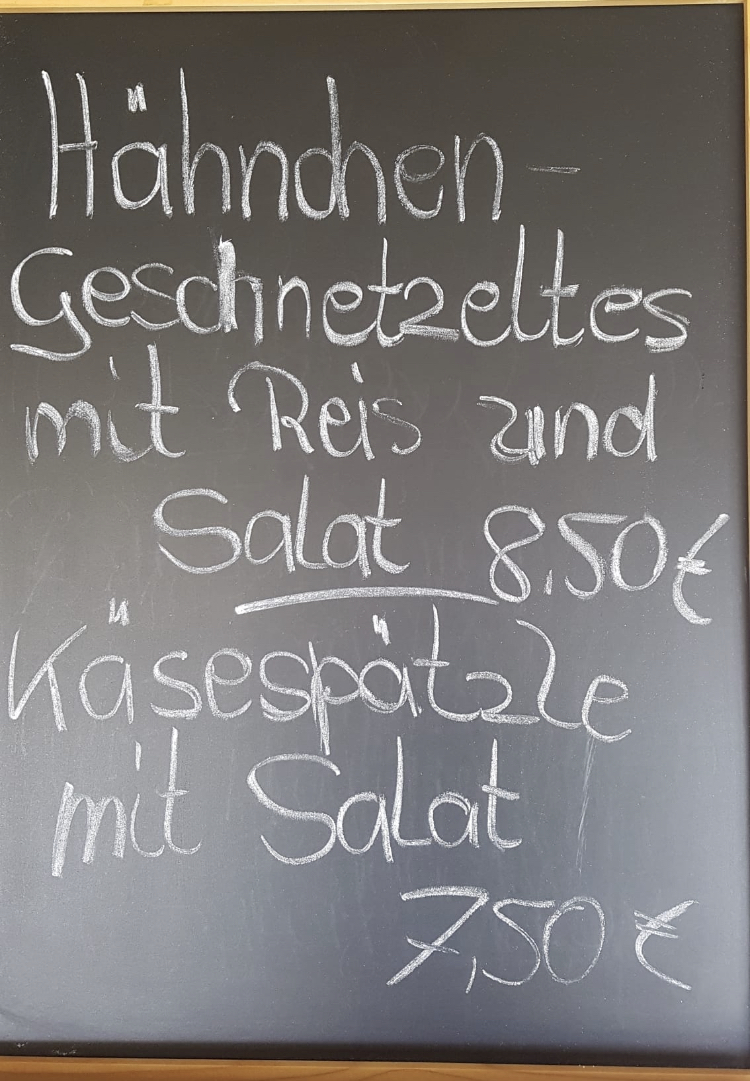 Hähnchen-
Geschnetzeltes
mit Reis und
Salat 8,50€
Käsespätzle
mit Salat
7,50 €